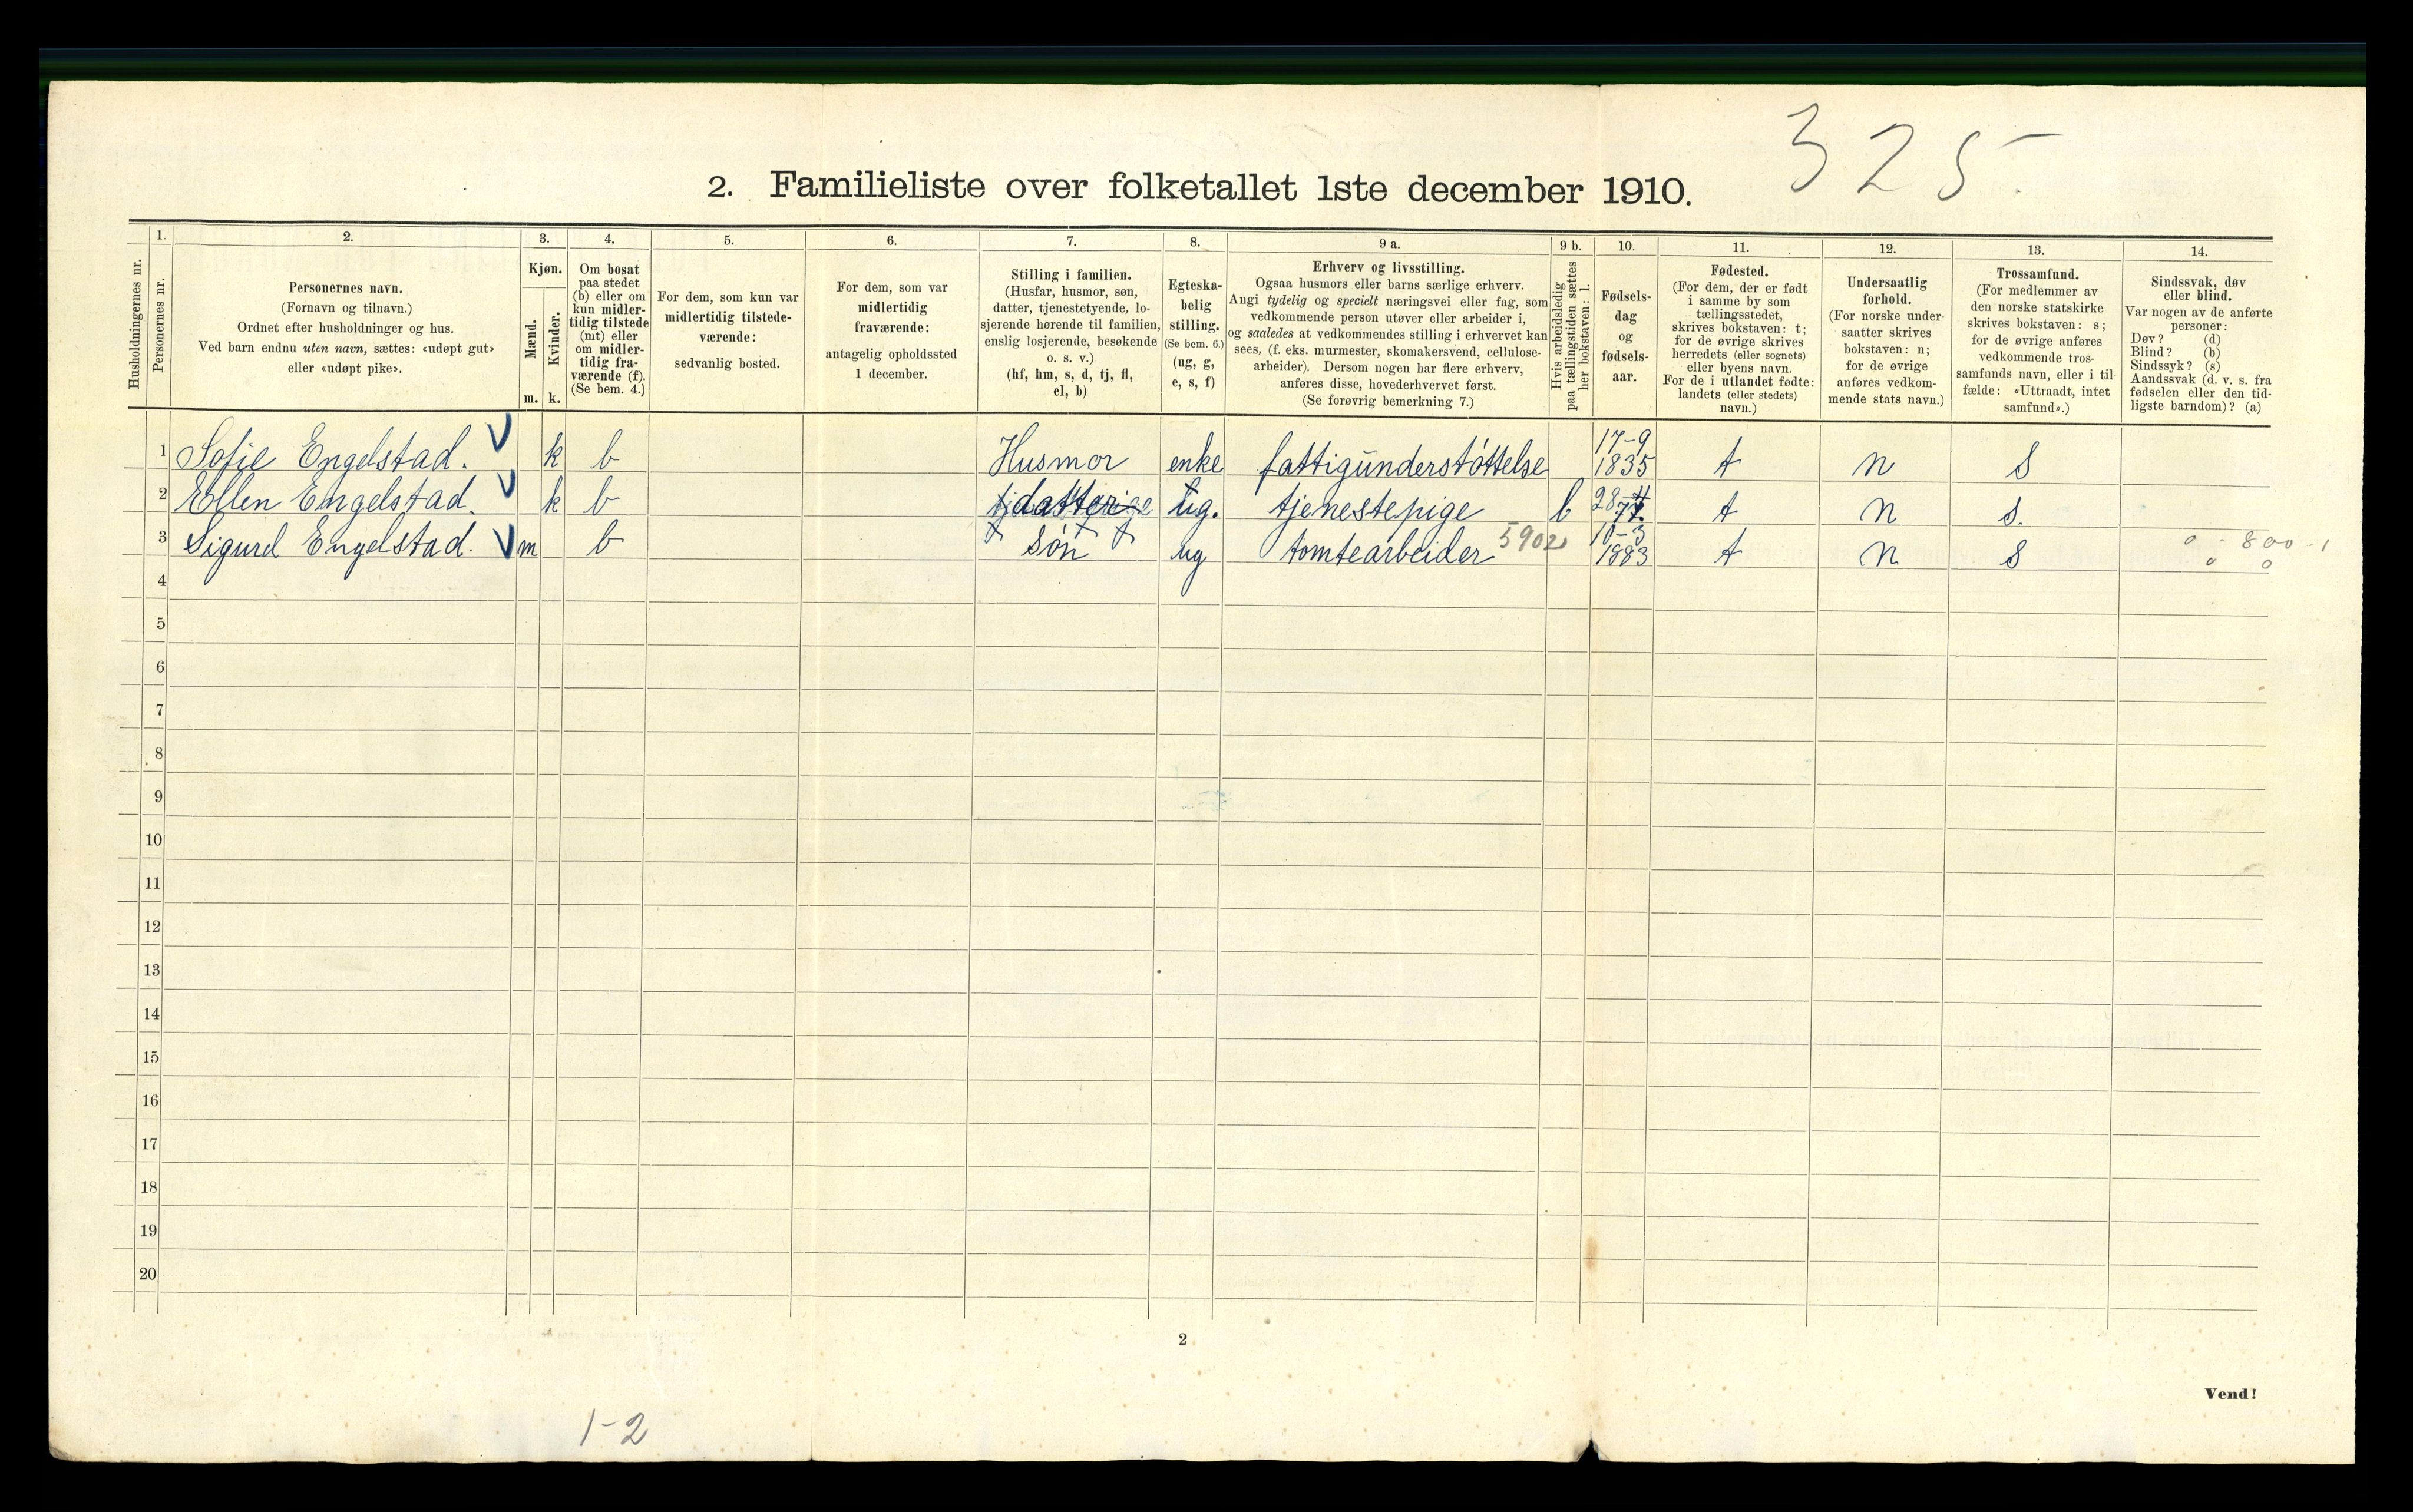 325
2. Familieliste over folketallet 1ste december 1910.
1. 2. 3. 4. 5. 6. 7. 8. 9 a. 9 b. 10. 11. 12. 13. 14.
Husholdningernes nr.
Personernes nr.
Personernes navn.
(Fornavn og tilnavn.)
Ordnet efter husholdninger og hus.
Ved barn endnu uten navn, sættes: «udøpt gut»
eller «udøpt pike».
Kjøn.
Mænd.
Kvinder.
m. k.
Om bosat
paa stedet
(b) eller om
kun midler-
tidig tilstede
(mt) eller
om midler-
tidig fra-
værende (f).
(Se bem. 4.)
For dem, som kun var
midlertidig tilstede-
værende:
sedvanlig bosted.
For dem, som var
midlertidig
fraværende:
antagelig opholdssted
1 december.
Stilling i familien.
(Husfar, husmor, søn,
datter, tjenestetyende, lo-
sjerende hørende til familien,
enslig losjerende, besøkende
o. s. v.)
(hf, hm, s, d, tj, fl,
el, b)
Egteska-
belig
stilling.
(Se bem. 6.)
(ug, g,
e, s, f)
Erhverv og livsstilling.
Ogsaa husmors eller barns særlige erhverv.
Angi tydelig og specielt næringsvei eller fag, som
vedkommende person utøver eller arbeider i,
og saaledes at vedkommendes stilling i erhvervet kan
sees, (f. eks. murmester, skomakersvend, cellulose-
arbeider). Dersom nogen har flere erhverv,
anføres disse, hovederhvervet først.
(Se forøvrig bemerkning 7.)
Hvis arbeidsledig
paa tællingstiden sættes
her bokstaven: l.
Fødsels-
dag
og
fødsels-
aar.
Fødested.
(For dem, der er født
i samme by som
tællingsstedet,
skrives bokstaven: t;
for de øvrige skrives
herredets (eller sognets)
eller byens navn.
For de i utlandet fødte:
landets (eller stedets)
navn.)
Undersaatlig
forhold.
(For norske under-
saatter skrives
bokstaven: n;
for de øvrige
anføres vedkom-
mende stats navn.)
Trossamfund.
(For medlemmer av
den norske statskirke
skrives bokstaven: s;
for de øvrige anføres
vedkommende tros-
samfunds navn, eller i til-
fælde: «Uttraadt, intet
samfund».)
Sindssvak, døv
eller blind.
Var nogen av de anførte
personer:
Døv? (d)
Blind? (b)
Sindssyk? (s)
Aandssvak (d. v. s. fra
fødselen eller den tid-
ligste barndom)? (a)
1 Sofie Engelstad. V k b Husmor enke fattigunderstøttelse 17-9 1835 t n s
2 Ellen Engelstad. V k b datter ug. tjenestepige l t n s.
3 Sigurd Engelstad. V m b Søn ug tomtearbeider 5902 10-3 1883 t n s 0 - 800 - 1
0 0
4
5
6
7
8
9
10
11
12
13
14
15
16
17
18
19
20
2
Vend!
1-2